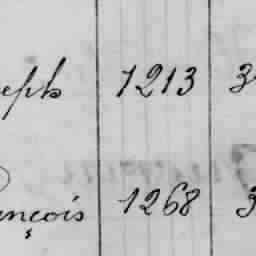 eph 1213 3
nçois 1268 3